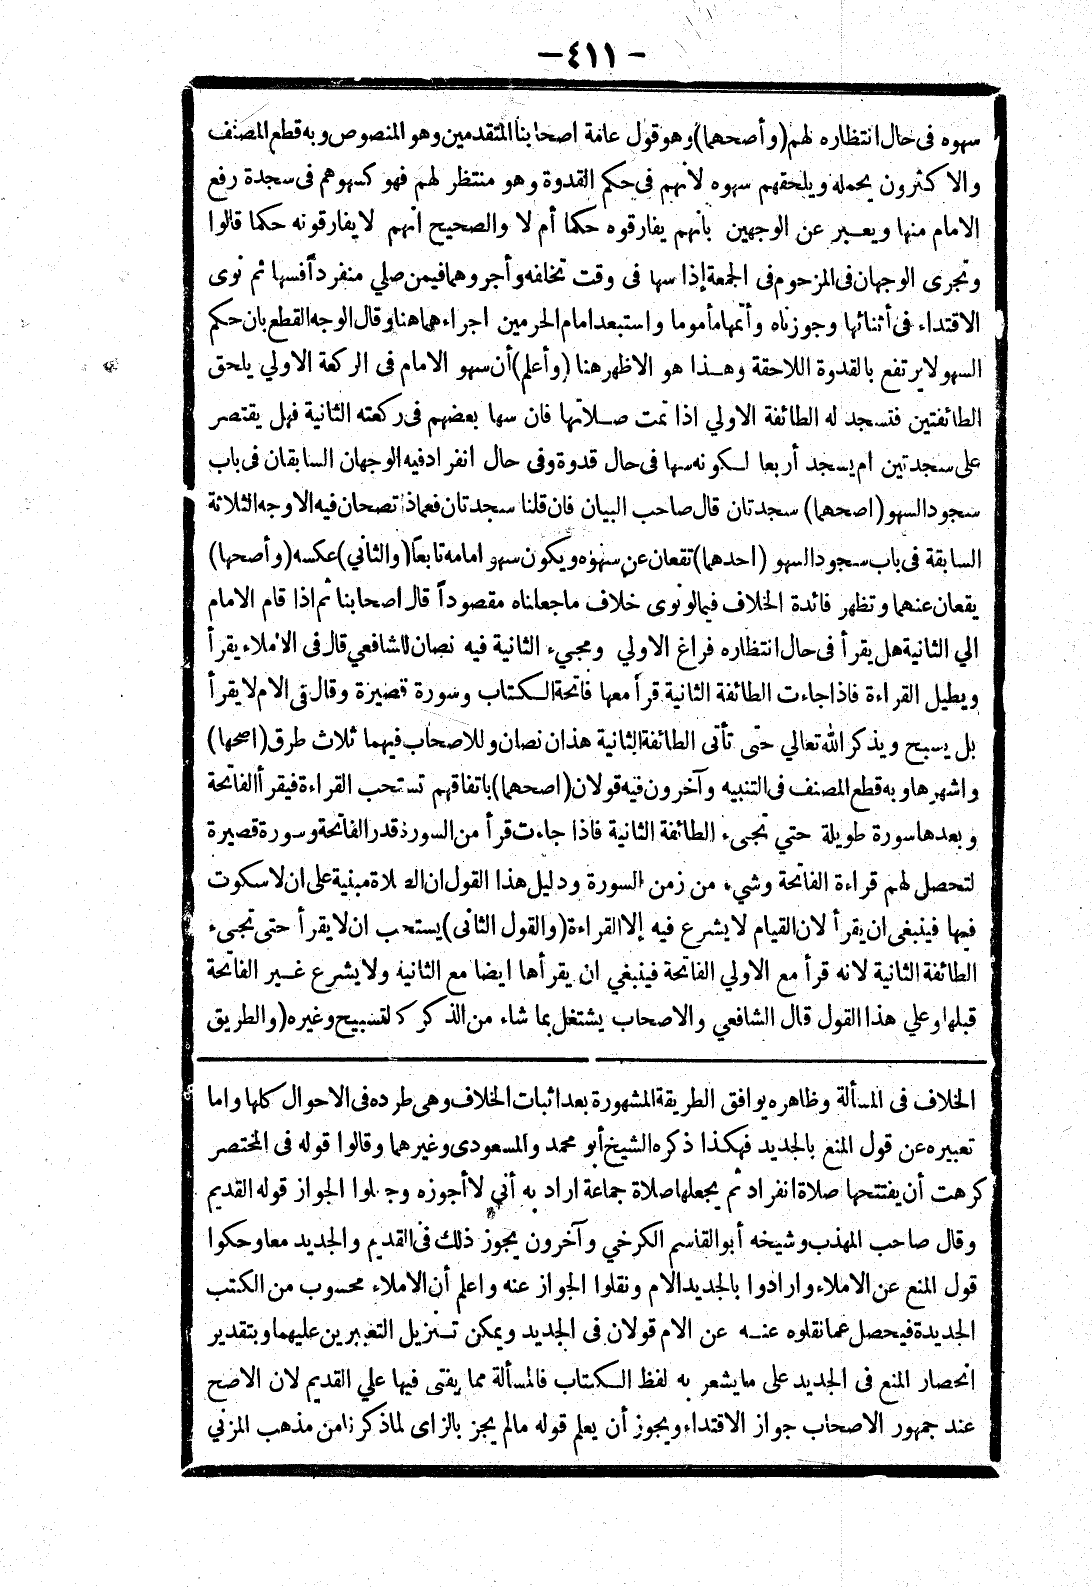 - ٤١١ -
سهوه فى حال انتظاره لهم (وأصحهما) وهو قول عامة اصحابنا المتقدمين وهو المنصوص وبه قطع المصنف
والاكثرون يحمله ويلحقهم سهوه لانهم فى حكم القدوة وهو منتظر لهم فهو كسهوهم فى سجدة رفع
الامام منها ويعبر عن الوجهين بانهم يفارقوه حكما أم لا والصحيح انهم لا يفارقونه حكما قالوا
وتجرى الوجهان فى المزحوم فى الجمعة إذا سها فى وقت تخلفه وأجروهما فيمن صلي منفرداً فسها ثم نوى
الاقتداء فى أثنائها وجوزناه وأتمها مأموما واستبعد امام الحرمين اجراءهما هنا وقال الوجه القطع بان حكم
السهو لا يرتفع بالقدوة اللاحقة وهذا هو الاظهر هنا (وأعلم) أن سهو الامام فى الركعة الاولي يلحق
الطائفتين فتسجد له الطائفة الاولي اذا تمت صلاتها فان سها بعضهم فى ركعته الثانية فهل يقتصر
على سجدتين ام يسجد أربعا لكونه سها فى حال قدوة وفى حال انفراد فيه الوجهان السابقان فى باب
سجود السهو (اصحهما) سجدتان قال صاحب البيان فان قلنا سجدتان فعماذا تصحان فيه الاوجه الثلاثة
السابقة فى باب سجود السهو (احدهما) تقعان عن سهوه ويكون سهو امامه تابعاً (والثاني) عكسه (وأصحها)
يقعان عنهما وتظهر فائدة الخلاف فيما لو نوى خلاف ما جعلناه مقصوداً قال اصحابنا ثم اذا قام الامام
الي الثانية هل يقرأ فى حال انتظاره فراغ الاولي ومجيء الثانية فيه نصان للشافعي قال فى الاملاء يقرأ
ويطيل القراءة فاذا جاءت الطائفة الثانية قرأ معها فاتحة الكتاب وسورة قصيرة وقال فى الام لا يقرأ
بل يسبح ويذكر الله تعالي حتى تأتى الطائفة الثانية هذان نصان وللاصحاب فيهما ثلاث طرق (اصحها)
واشهرها وبه قطع المصنف فى التنبيه وآخرون فيه قولان (اصحهما) باتفاقهم تستحب القراءة فيقرأ الفاتحة
وبعدها سورة طويلة حتي تجيء الطائفة الثانية فاذا جاءت قرأ من السورة قدر الفاتحة وسورة قصيرة
لتحصل لهم قراءة الفاتحة وشيء من زمن السورة ودليل هذا القول ان الصلاة مبنية على ان لا سكوت
فيها فينبغى ان يقرأ لان القيام لا يشرع فيه إلا القراءة (والقول الثانى) يستحب ان لا يقرأ حتى تجيء
الطائفة الثانية لانه قرأ مع الاولي الفاتحة فينبغي ان يقرأها ايضا مع الثانية ولا يشرع غير الفاتحة
قبلها وعلي هذا القول قال الشافعي والاصحاب يشتغل بما شاء من الذكر كالتسبيح وغيره (والطريق
الخلاف فى المسألة وظاهره يوافق الطريقة المشهورة بعد اثبات الخلاف وهى طرده فى الاحوال كلها واما
تعبيره عن قول المنع بالجديد فهكذا ذكره الشيخ أبو محمد والمسعودى وغيرهما وقالوا قوله فى المختصر
كرهت أن يفتتحها صلاة انفراد ثم يجعلها صلاة جماعة اراد به أني لا أجوزه وجعلوا الجواز قوله القديم
وقال صاحب المهذب وشيخه أبو القاسم الكرخي وآخرون يجوز ذلك فى القديم والجديد معا وحكوا
قول المنع عن الاملاء وارادوا بالجديد الام ونقلوا الجواز عنه واعلم أن الاملاء محسوب من الكتب
الجديدة فيحصل عما نقلوه عنه عن الام قولان فى الجديد ويمكن تنزيل التعبيرين عليهما وبتقدير
انحصار المنع فى الجديد على ما يشعر به لفظ الكتاب فالمسألة مما يفتى فيها علي القديم لان الاصح
عند جمهور الاصحاب جواز الاقتداء ويجوز أن يعلم قوله مالم يجز بالزاى لما ذكرنا من مذهب المزني